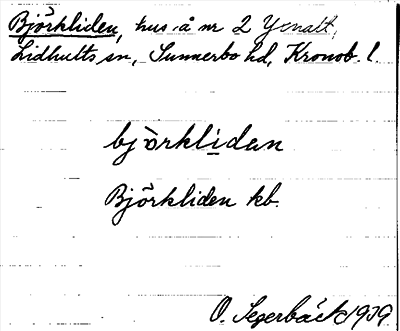 Björkliden, hus å nr 2 Yxnalt,
Lidhults sn, Sunnerbo hd, Kronob. l.
björklidan
Björkliden kb.
O. Segerbäck 1939